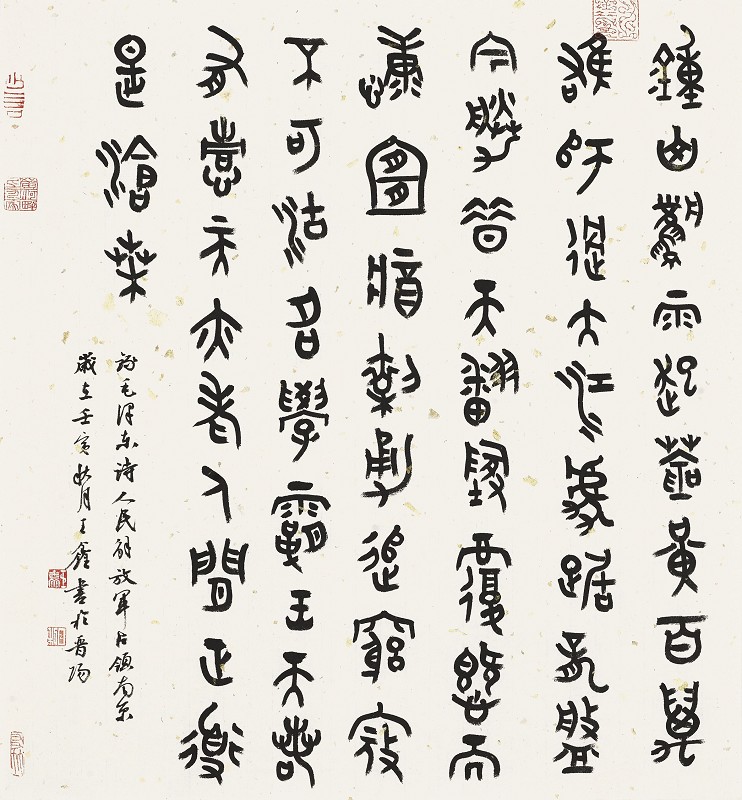 鐘山風雨起蒼黃百萬
雄師過大江虎踞龍盤
今勝昔天翻地覆慨而
慷宜將剩勇追窮寇
不可沽名學霸王天若
有情天亦老人間正道
是滄桑
錄毛泽东诗人民解放军占领南京
歲在壬寅秋月王鑫書於晉陽